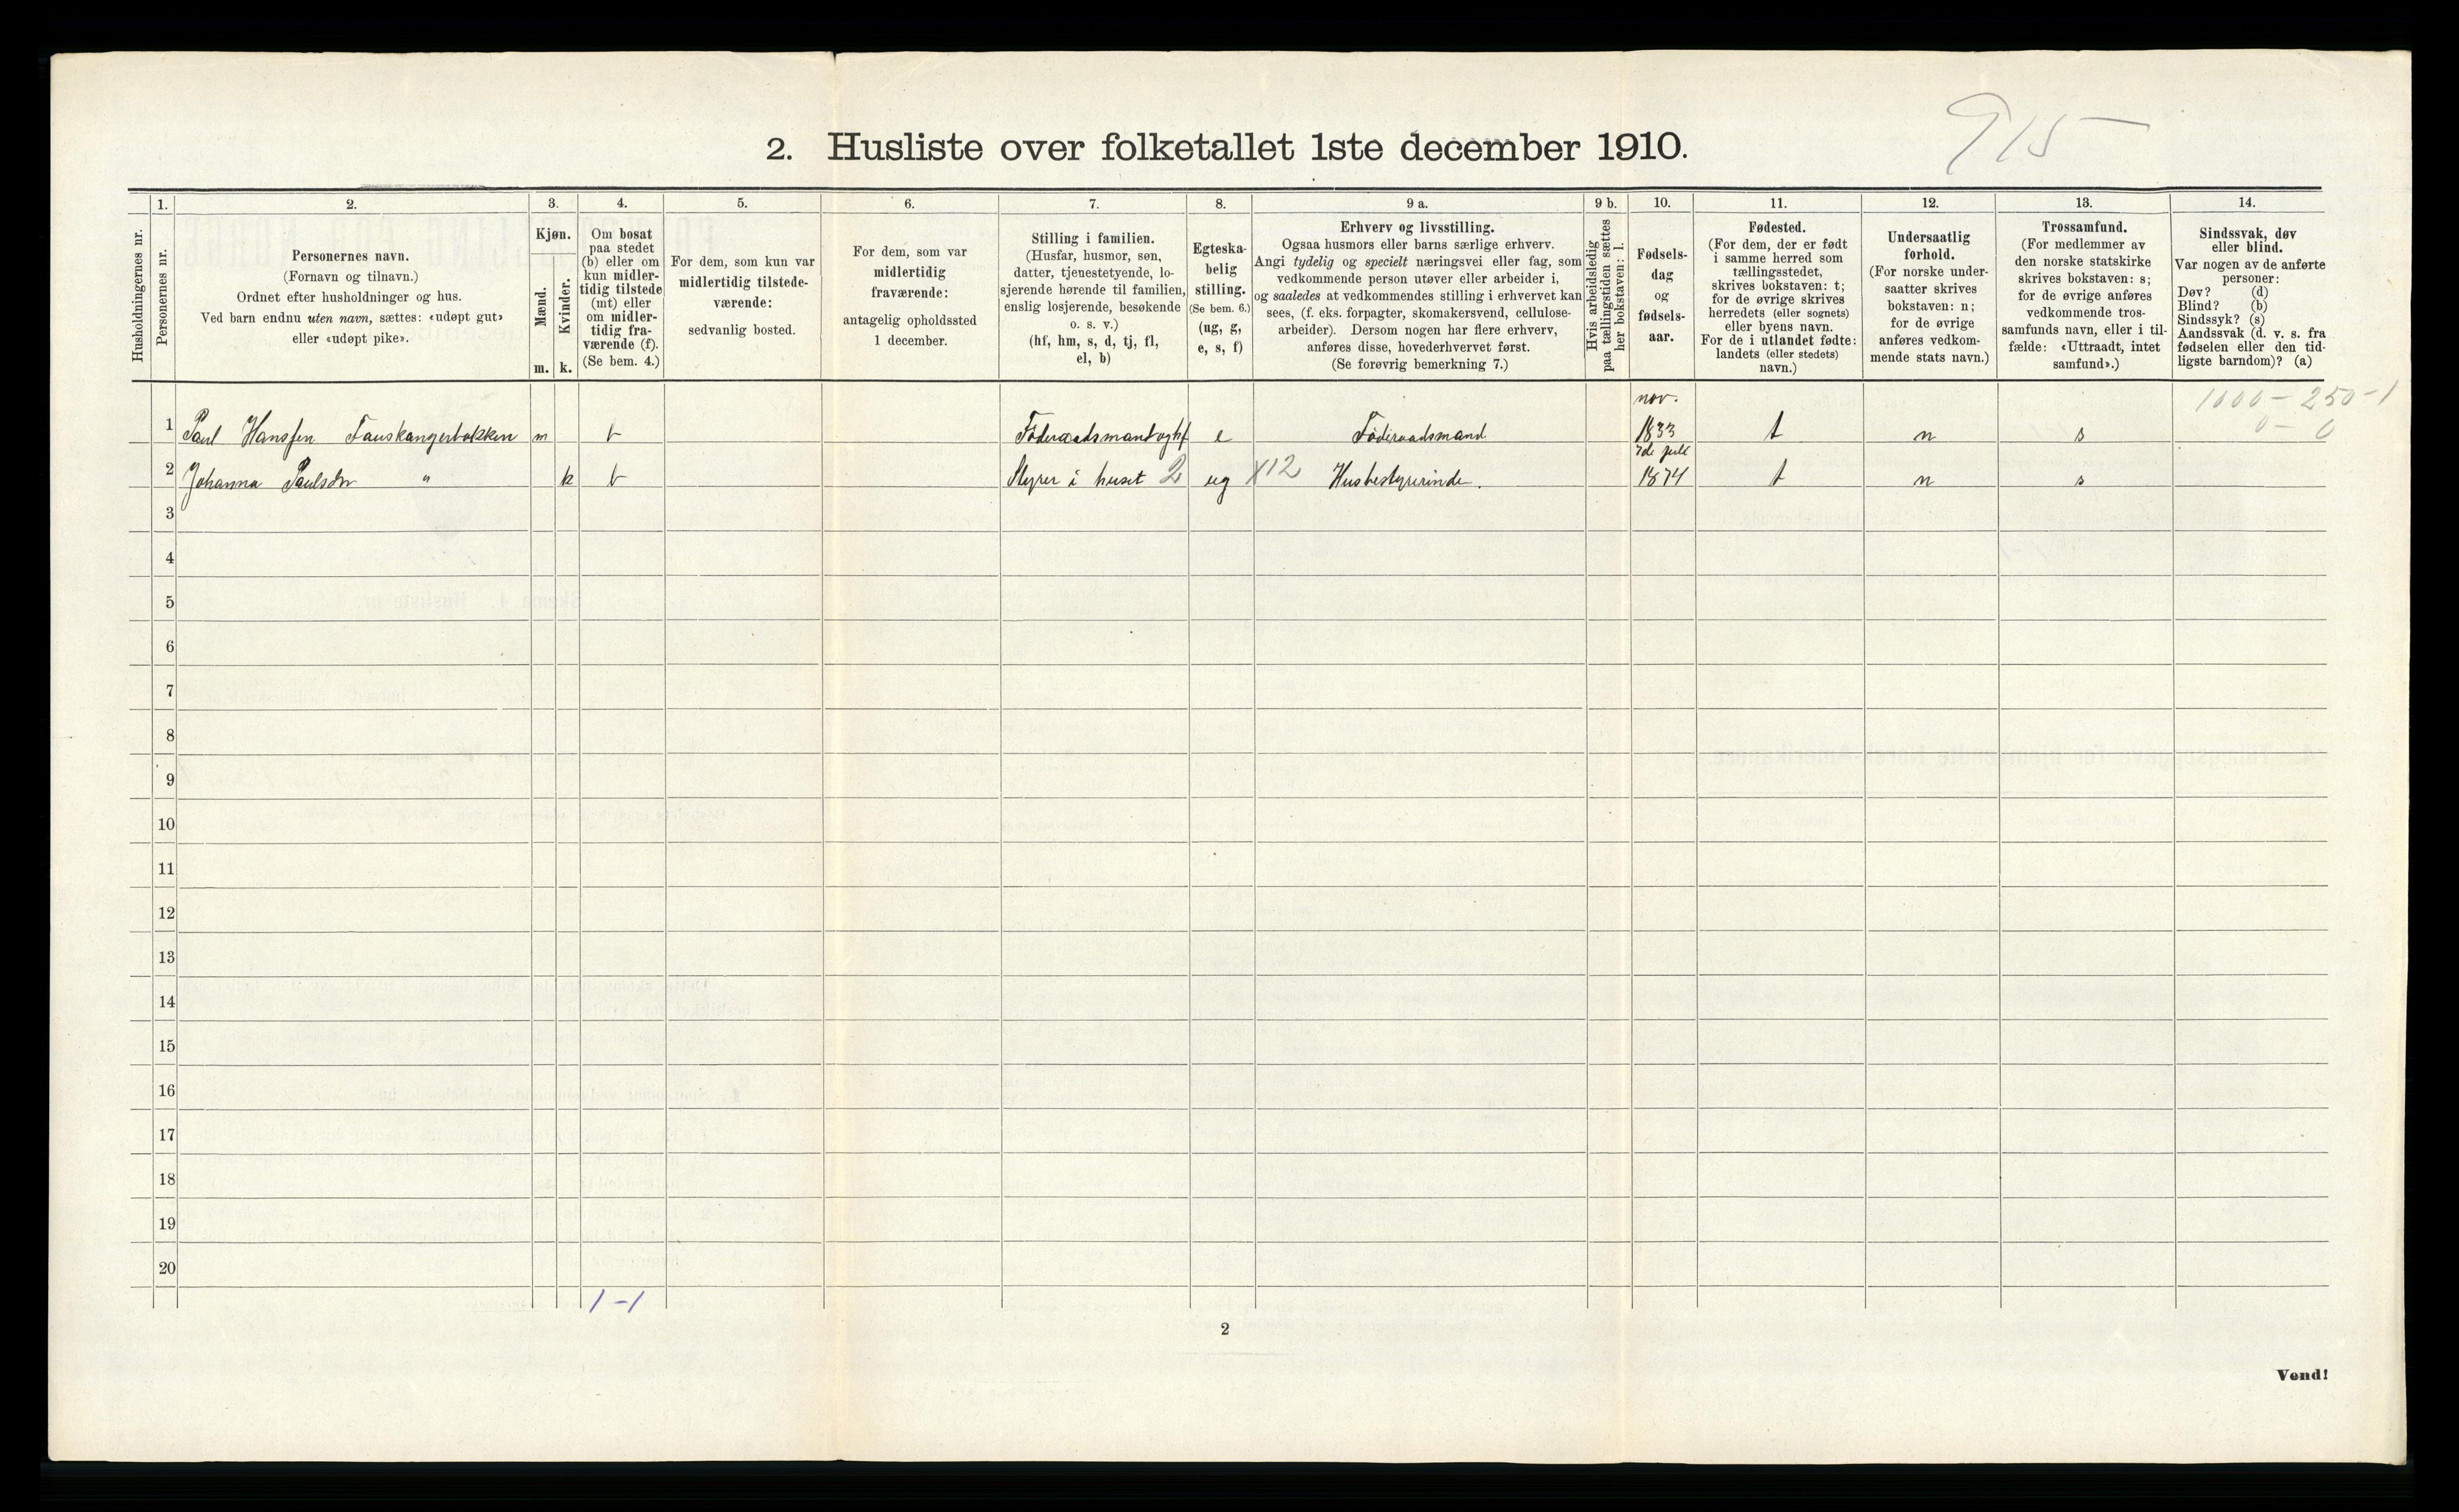 915
2. Husliste over folketallet 1ste december 1910.
Husholdningernes nr.
1.
Personernes nr.
2.
Personernes navn.
(Fornavn og tilnavn.)
Ordnet efter husholdninger og hus.
Ved barn endnu uten navn, sættes: «udøpt gut»
eller «udøpt pike».
3.
Kjøn.
Mænd.
Kvinder.
m. k.
4.
Om bosat
paa stedet
(b) eller om
kun midler-
tidig tilstede
(mt) eller
om midler-
tidig fra-
værende (f).
(Se bem. 4.)
5.
For dem, som kun var
midlertidig tilstede-
værende:
sedvanlig bosted.
6.
For dem, som var
midlertidig
fraværende:
antagelig opholdssted
1 december.
7.
Stilling i familien.
(Husfar, husmor, søn,
datter, tjenestetyende, lo-
sjerende hørende til familien,
enslig losjerende, besøkende
o. s. v.)
(hf, hm, s, d, tj, fl,
el, b)
8.
Egteska-
belig
stilling.
(Se bem. 6.)
(ug, g,
e, s, f)
9 a.
Erhverv og livsstilling.
Ogsaa husmors eller barns særlige erhverv.
Angi tydelig og specielt næringsvei eller fag, som
vedkommende person utøver eller arbeider i,
og saaledes at vedkommendes stilling i erhvervet kan
sees, (f. eks. forpagter, skomakersvend, cellulose-
arbeider). Dersom nogen har flere erhverv,
anføres disse, hovederhvervet først.
(Se forøvrig bemerkning 7.)
9 b.
Hvis arbeidsledig
paa tællingstiden sættes
her bokstaven: l.
10.
Fødsels-
dag
og
fødsels-
aar.
11.
Fødested.
(For dem, der er født
i samme herred som
tællingsstedet,
skrives bokstaven: t;
for de øvrige skrives
herredets (eller sognets)
eller byens navn.
For de i utlandet fødte:
landets (eller stedets)
navn.)
12.
Undersaatlig
forhold.
(For norske under-
saatter skrives
bokstaven: n;
for de øvrige
anføres vedkom-
mende stats navn.)
13.
Trossamfund.
(For medlemmer av
den norske statskirke
skrives bokstaven: s;
for de øvrige anføres
vedkommende tros-
samfunds navn, eller i til-
fælde: «Uttraadt, intet
samfund».)
14.
Sindssvak, døv
eller blind.
Var nogen av de anførte
personer:
Døv? (d)
Blind? (b)
Sindssyk? (s)
Aandssvak (d. v. s. fra
fødselen eller den tid-
ligste barndom)? (a)
1000 - 250 - 1
0 - 0
1 Paul Hansfen Fauskangerbakken m b Föderaadsmand og hf e Föderaadsmand nov. 1833 t n s
2 Johanna Paulsdtr " k b Styrer i huset 2 ug X12 Husbestyrerinde. 7de juli 1874 t n s
3
4
5
6
7
8
9
10
11
12
13
14
15
16
17
18
19
20
1 - 1
2
Vend!